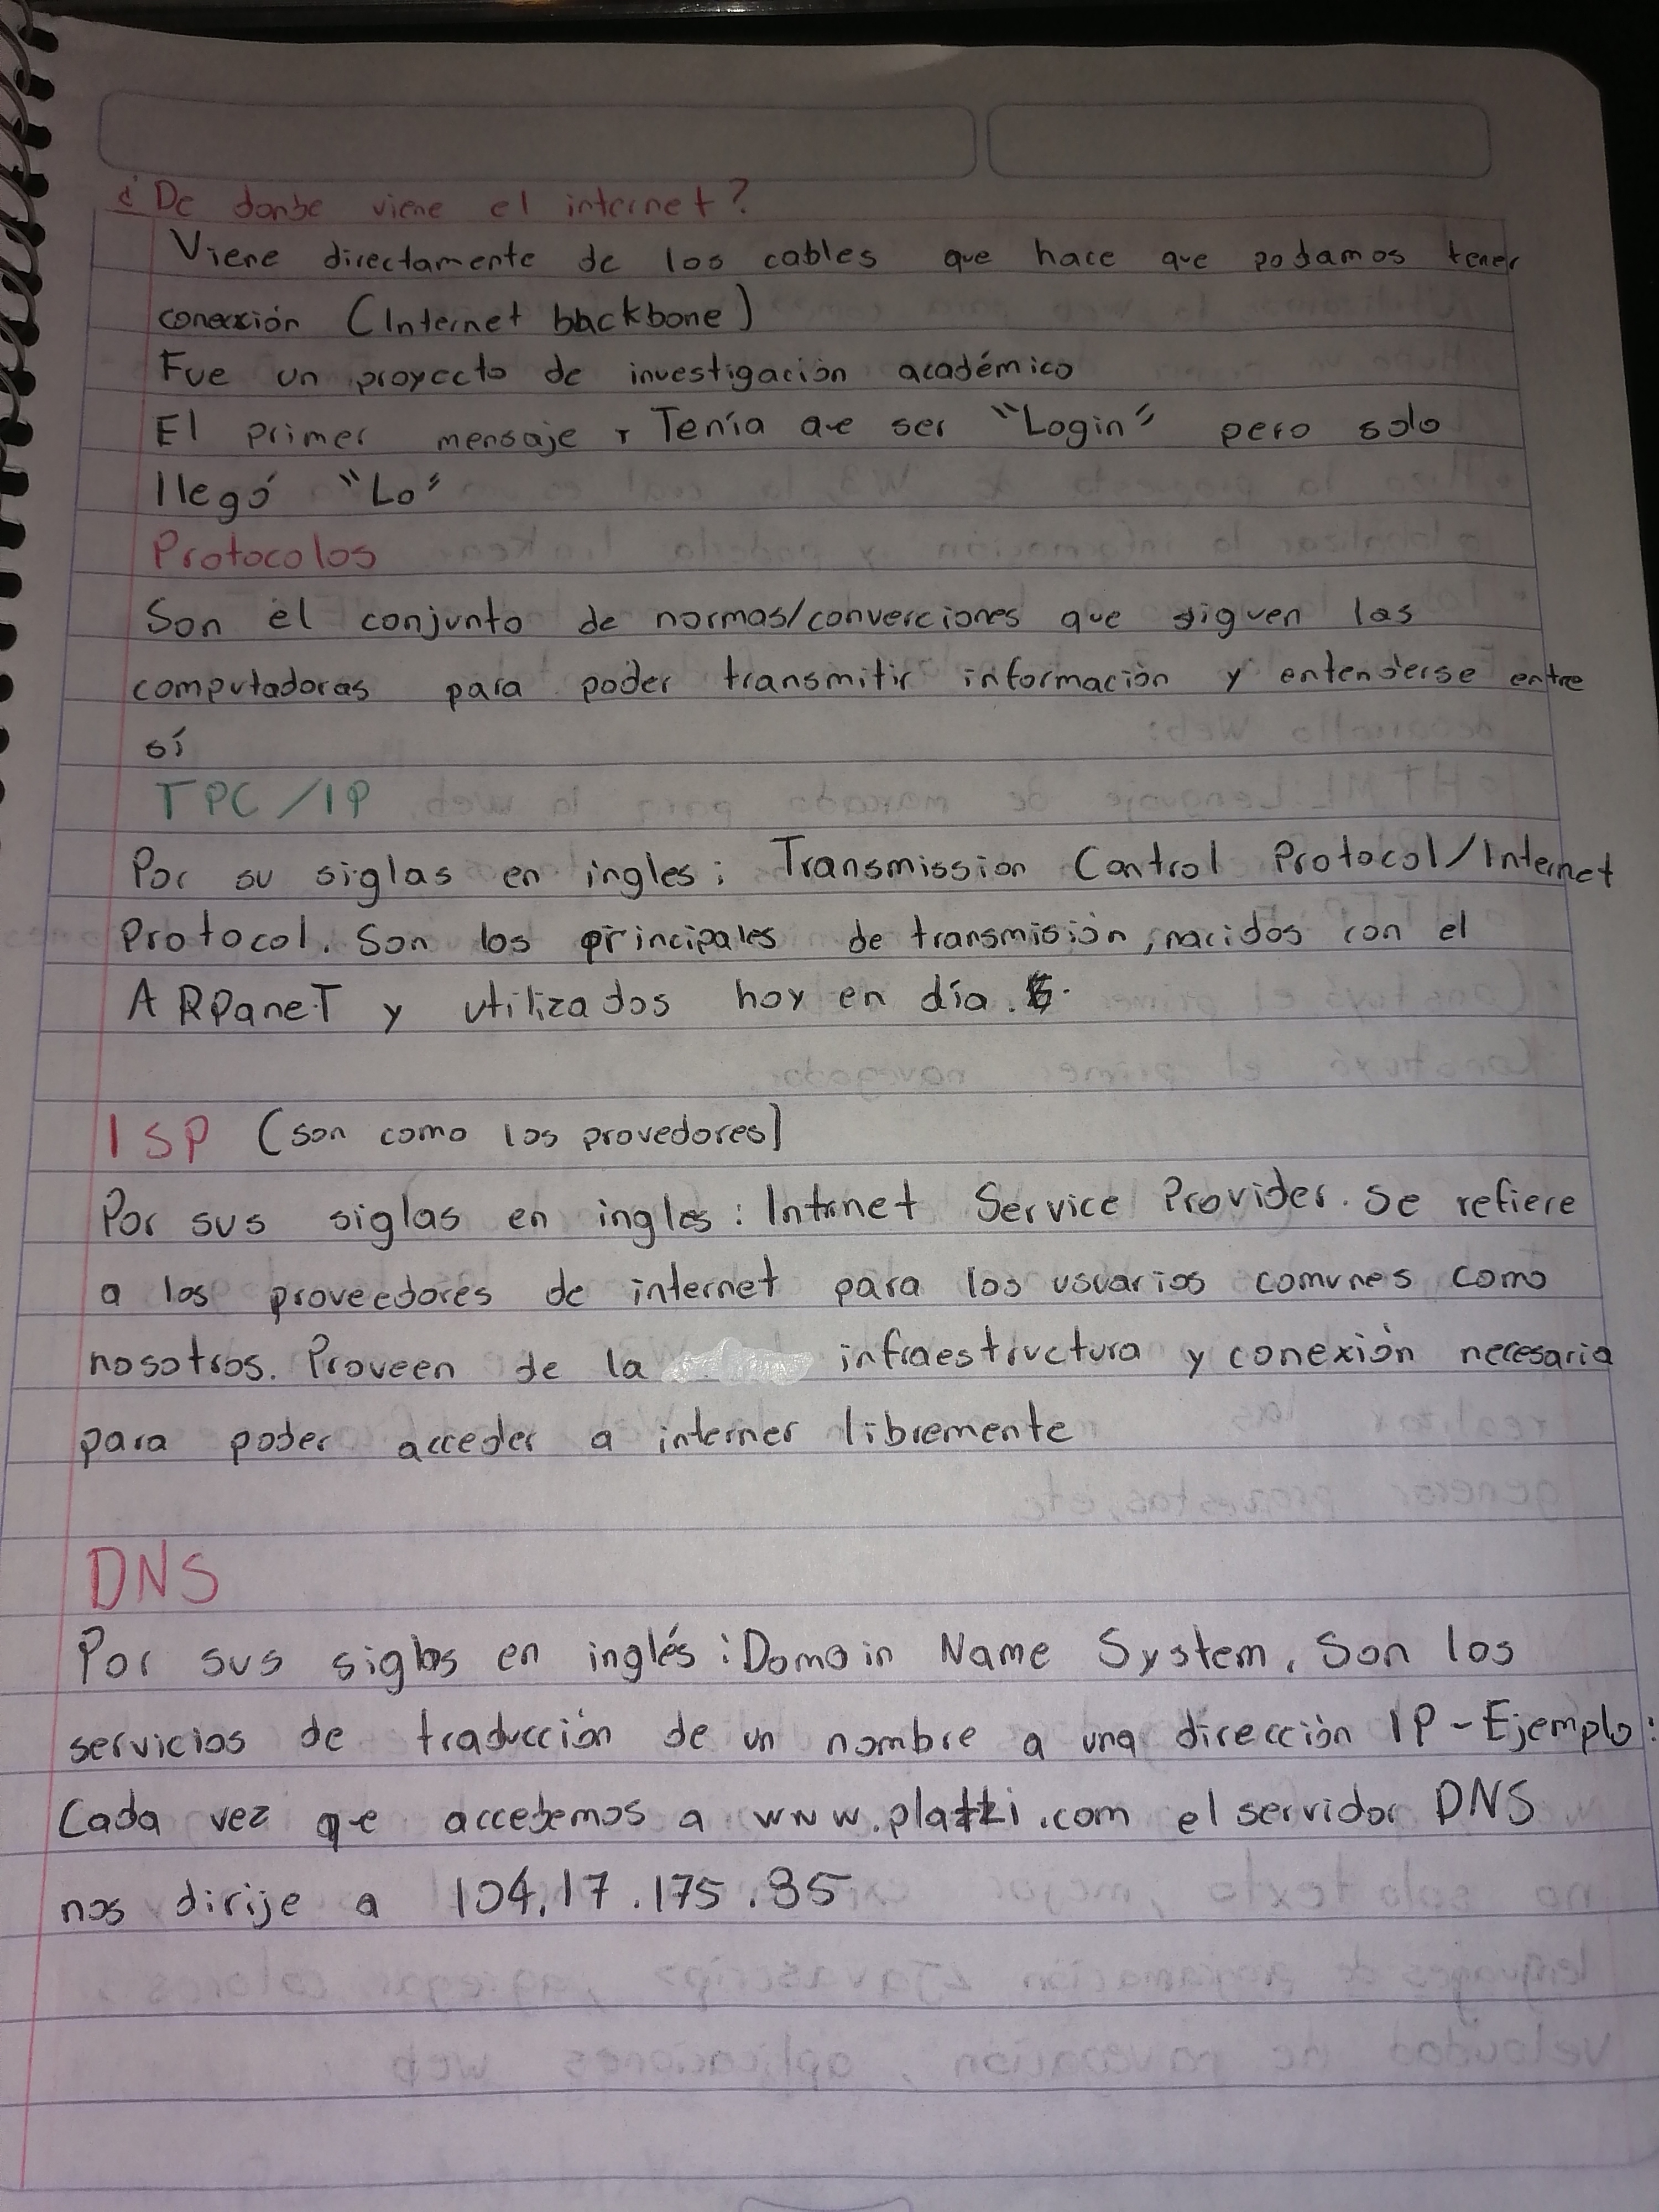 ¿De donde viene el internet?
Viene directamente de los cables que hace que podamos tener
conexión (Internet backbone)
Fue un proyecto de investigación académico
El primer mensaje, Tenía que ser "Login" pero solo
llegó "Lo"
Protocolos
Son el conjunto de normas/converciones que siguen las
computadoras para poder transmitir información y entenderse entre
sí
TPC/IP
Por su siglas en ingles: Transmission Control Protocol/Internet
Protocol. Son los principales de transmisión, nacidos con el
ARPaneT y utilizados hoy en día.
ISP (son como los provedores)
Por sus siglas en ingles: Internet Service Provider. Se refiere
a los proveedores de internet para los usuarios comunes como
nosotros. Proveen de la infraestructura y conexión necesaria
para poder acceder a interner libremente
DNS
Por sus siglas en inglés: Domain Name System. Son los
servicios de traducción de un nombre a una dirección IP-Ejemplo:
Cada vez qe accedemos a www.platzi.com el servidor DNS
nos dirije a 104.17.175.85